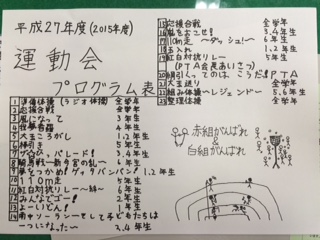 平成27年度(2015年度)
運動会
プログラム表
1 準備体操(ラジオ体操) 全学年
2 応援合戦 全学年
3 風になって 3年生
4 我夢奮闘 4年生
5 大玉ころがし 1,2年生
6 棒引き 5年生
パレード! 3,4年生
騎馬戦 6年生
9 夢をつかめ!ゲッタバンバン! 1,2年生
10 110m走 5年生
11 紅白対抗リレー〜絆〜 6年生
12 みんなでゴー! 2年生
13 よーいどん! 1年生
14 南中ソーラン
一つになった〜 3,4年生
15 応援合戦 全学年
16 嵐をおこせ! 3,4年生
17 走 〜ダッシュ!〜 6年生
18 玉入れ 1,2年生
19 紅白対抗リレー 5年生
(PTA会長あいさつ)
20 綱引くってのは こうだ! PTA
21 大玉送り 全学年
22 組み体操〜レジェンド〜 5,6年生
23 整理体操 全学年
赤組がんばれ
&
白組がんばれ